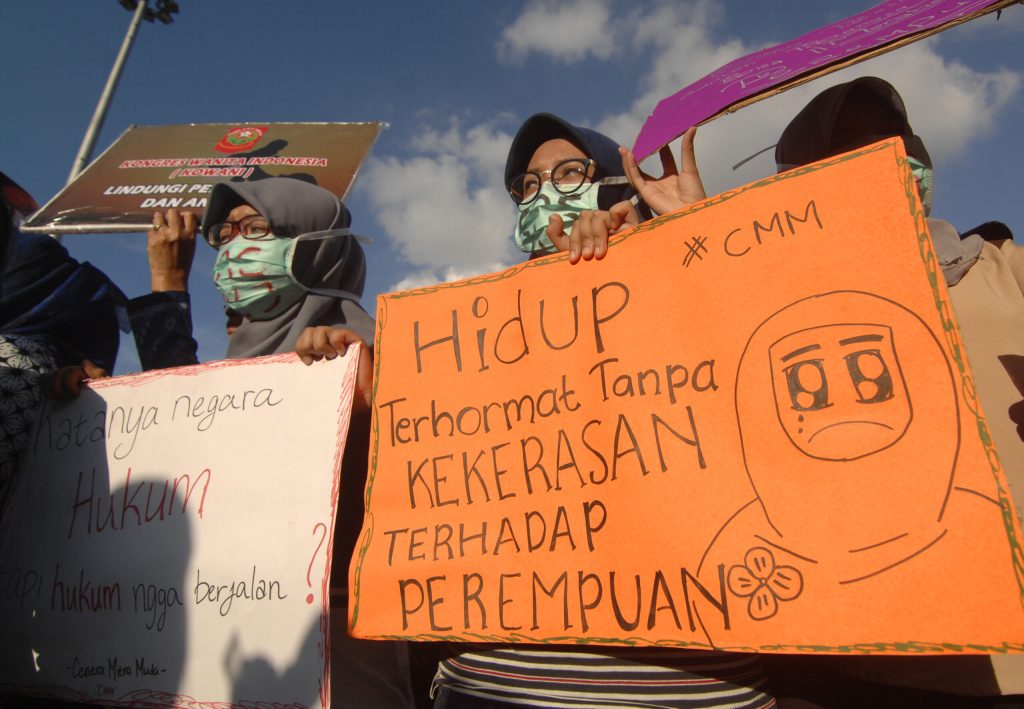 KONGRES WANITA INDONESIA
( KOWANI )
LINDUNGI
DAN
Katanya negara
Hukum
tapi hukum ngga berjalan ?
- Centra Mitra Muda -
"CMM"
#CMM
HidUP
Terhormat Tanpa
KEKERASAN
TERHADAP
PEREMPUAN